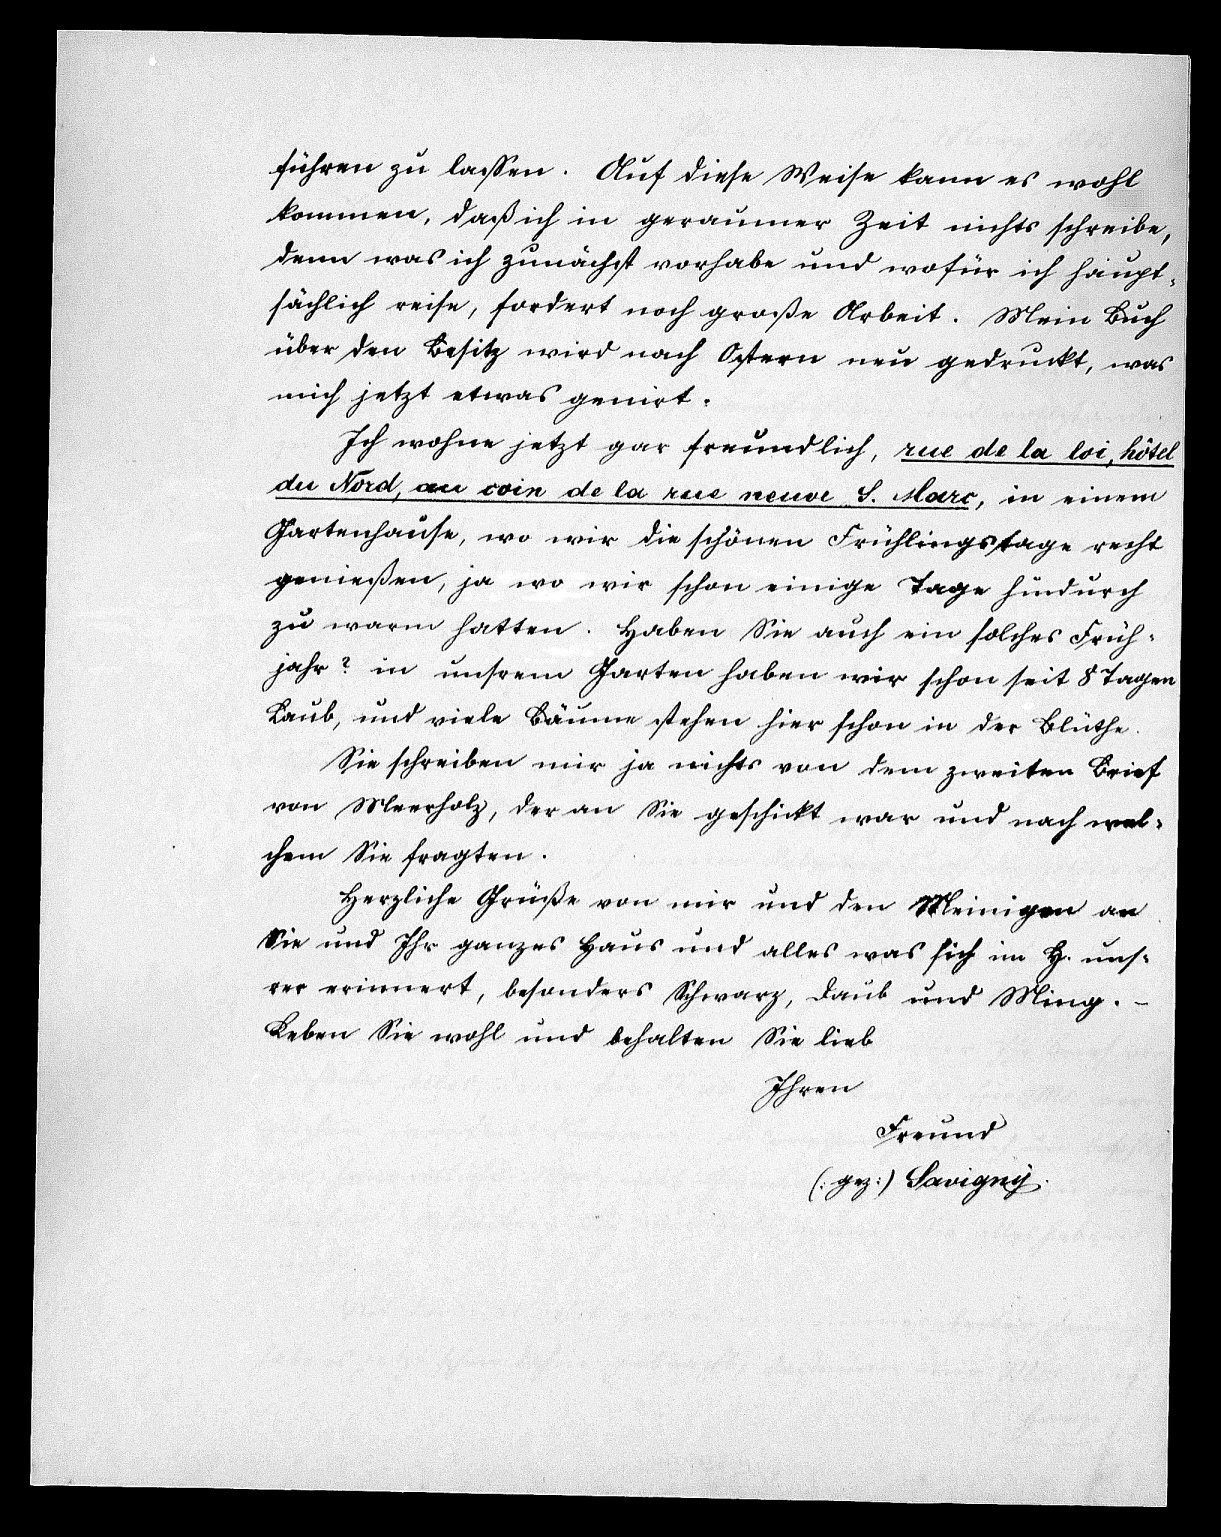 führen zu lassen. Auf diese Weise kann es wohl
kommen, daß ich in geraumer Zeit nichts schreibe,
denn was ich zunächst vorhabe und wofür ich haupt-
sächlich reise, fordert noch große Arbeit. Mein Buch
über den Besitz wird nach Ostern neu gedruckt, was
mich jetzt etwas genirt.
Ich wohne jetzt gar freundlich, rue de la loi, hôtel
du Nord, au coin de la rue neuve S. Marc, in einem
Gartenhause, wo wir die schönen Frühlingstage recht
genießen, ja wo wir schon einige Tage hindurch
zu warm hatten. Haben Sie auch ein solches Früh-
jahr? in unsrem Garten haben wir schon seit 8 Tagen
Laub, und viele Bäume stehen hier schon in der Blüthe.
Sie schreiben mir ja nichts von dem zweiten Brief
von Meerholz, der an Sie geschickt war und nach wel-
chem Sie fragten.
Herzliche Grüße von mir und den Meinigen an
Sie und Ihr ganzes Haus und alles was sich im H. uns-
rer erinnert, besonders Schwarz, Daub und Ming. -
Leben Sie wohl und behalten Sie lieb
Ihren
Freund
(: gez :) Savigny.